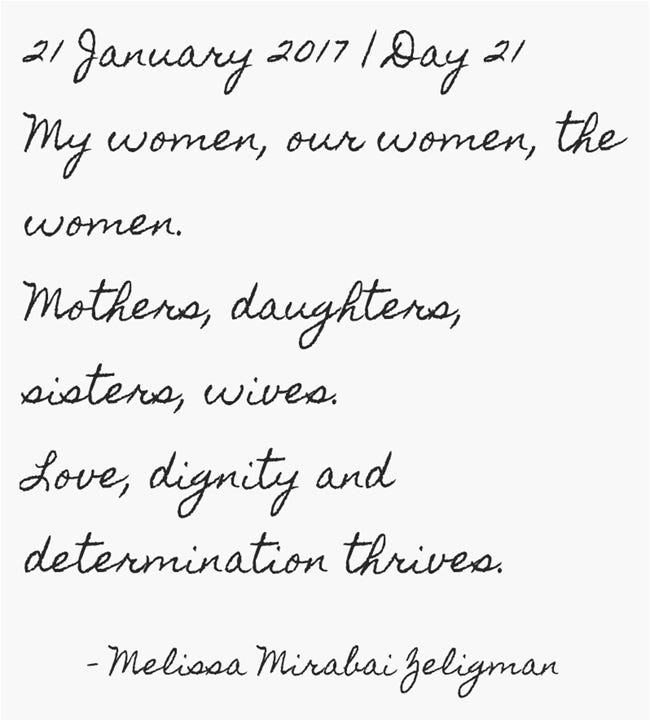 21 January 2017 | Day 21
My women, our women, the
women.
Mothers, daughters,
sisters, wives.
Love, dignity and
determination thrives.
- Melissa Mirabai Zeligman